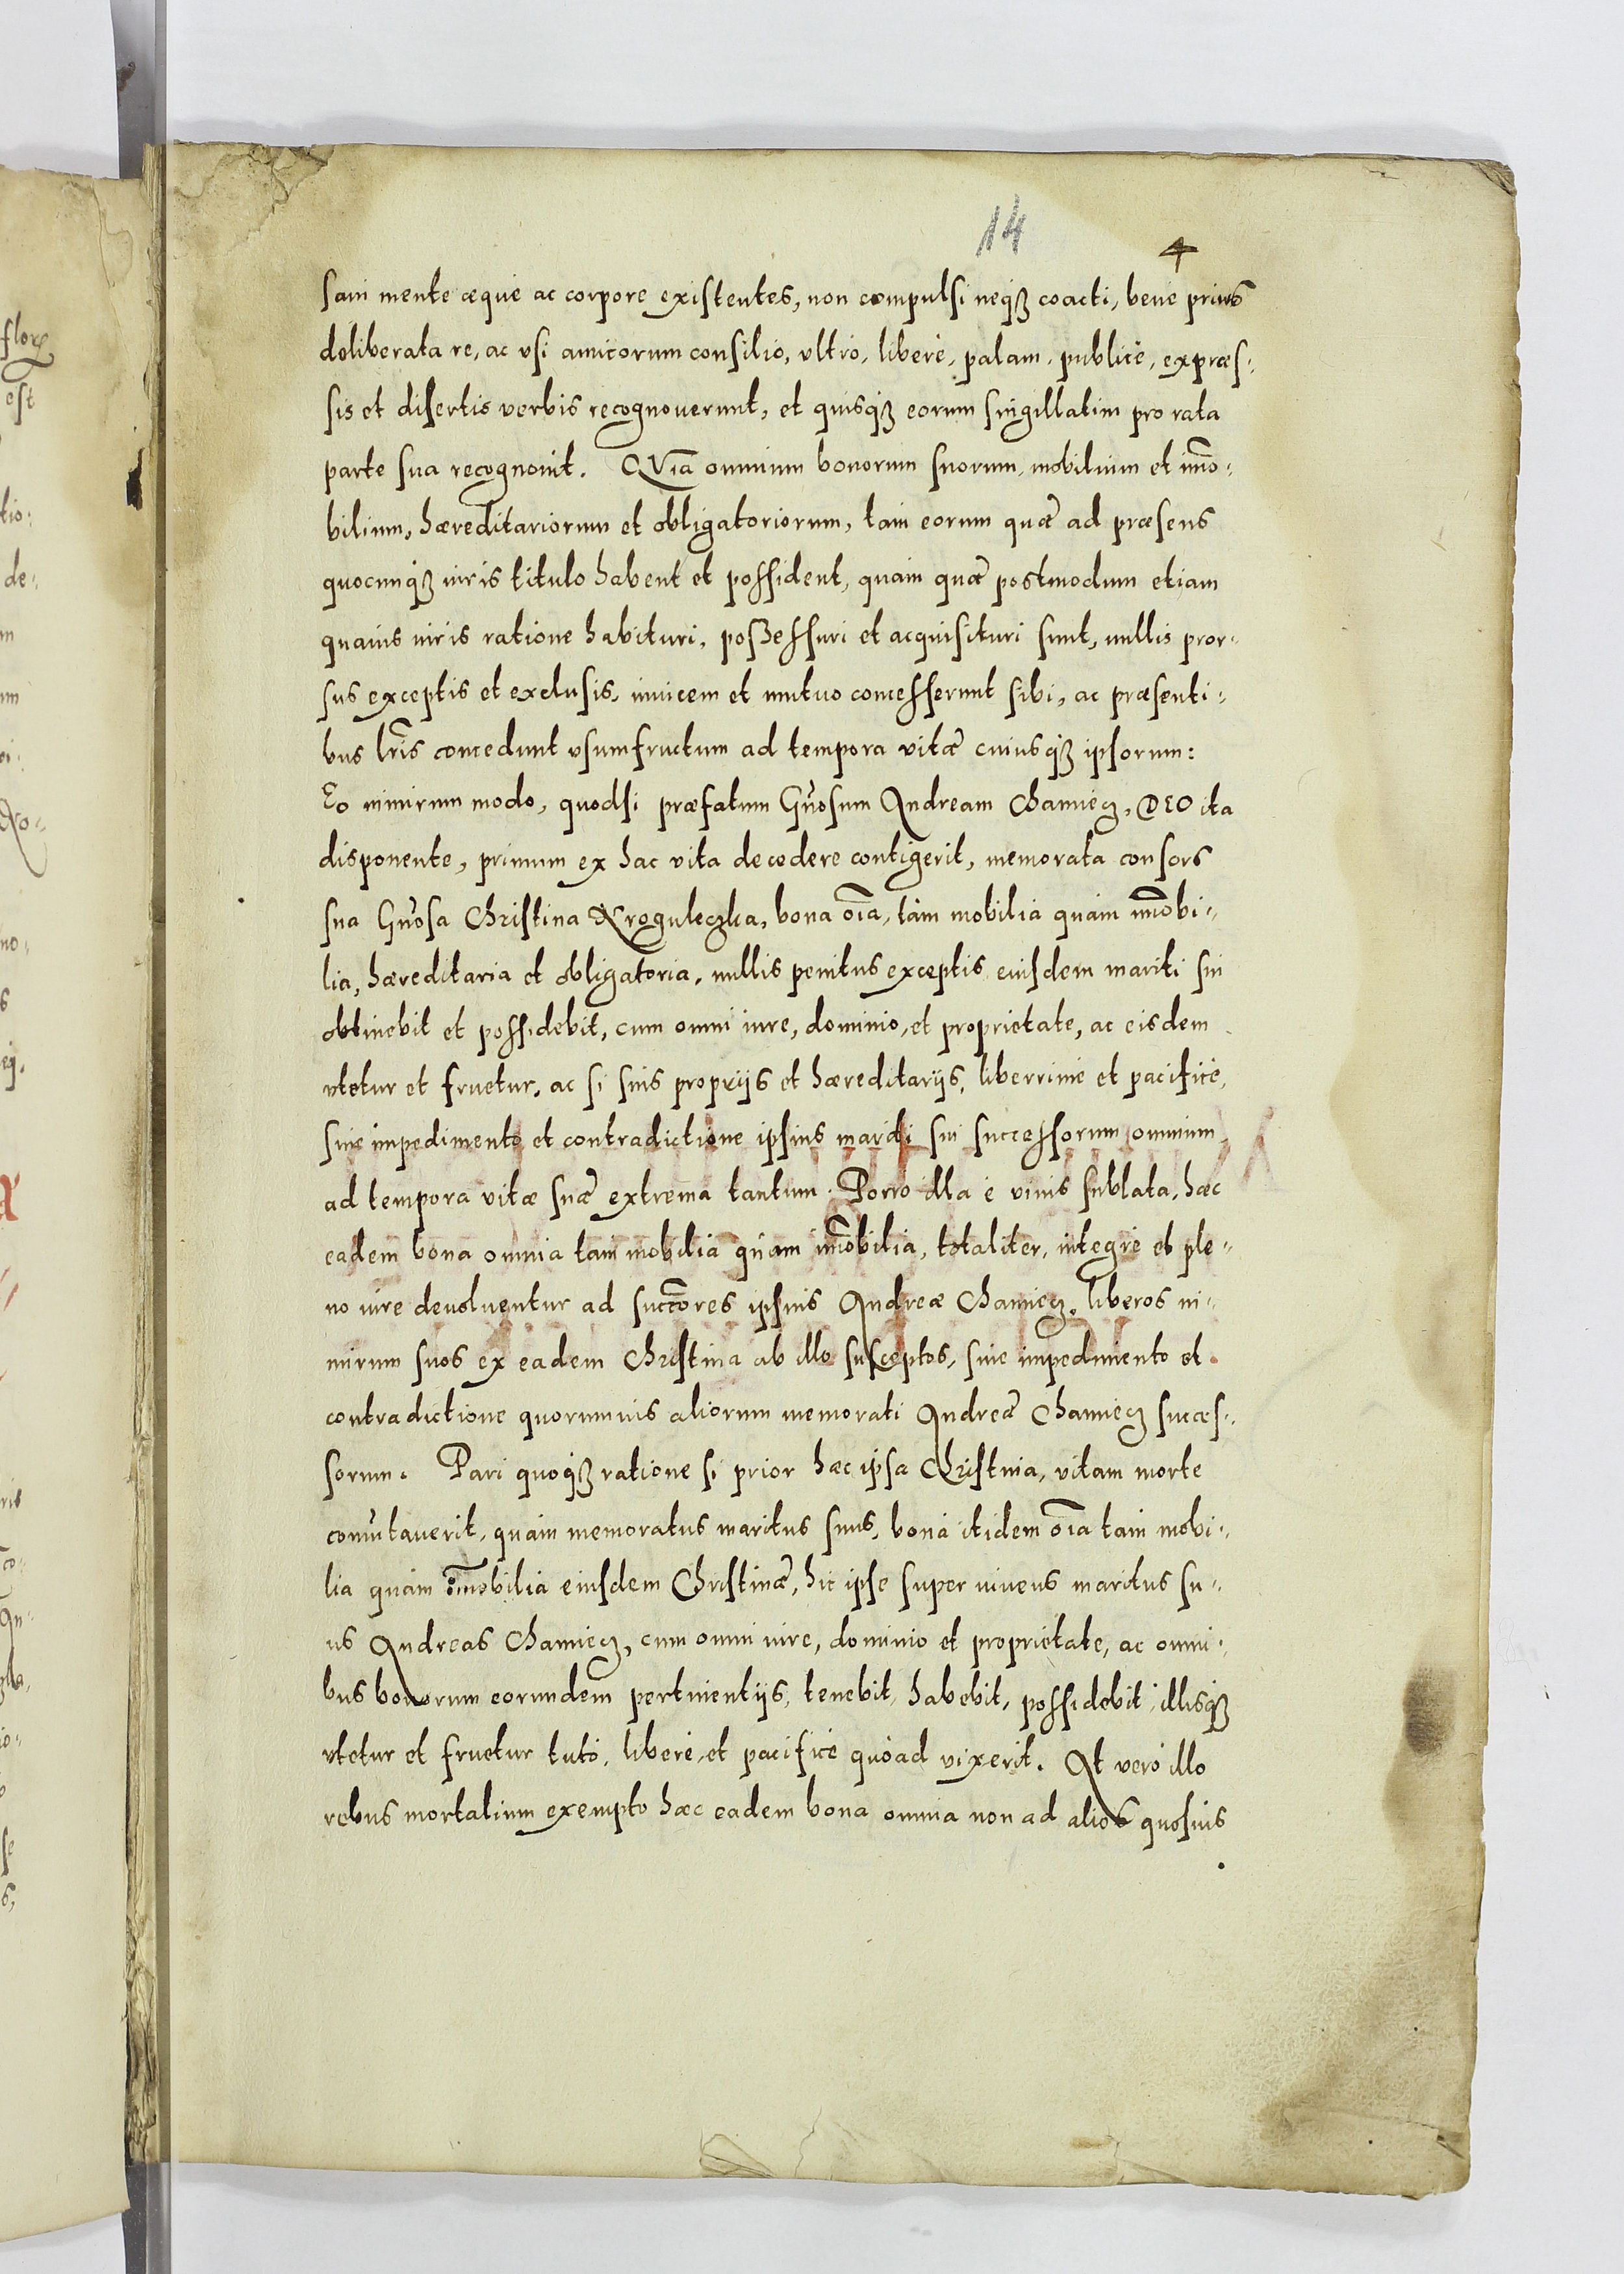 14
4
sani mente æque ac corpore existentes, non compulsi neqꝫ coacti, bene prius
deliberata re, ac vsi amicorum consilio, vltrò, liberè, palam, publicè, expræs-
sis et disertis verbis recognouerunt, et quisqꝫ eorum singillatim pro rata
parte sua recognouit. QVia omnium bonorum suorum, mobilium et im̃o-
bilium, hæreditariorum et obligatoriorum, tam eorum quæ ad præsens
quocunqꝫ iuris titulo habent et possident, quàm quæ postmodum etiam
quauis iuris ratione habituri, possessuri et acquisituri sunt, nullis pror-
sus exceptis et exclusis, inuicem et mutuo concesserunt sibi, ac præsenti-
bus lr̃is concedunt vsumfructum ad tempora vitæ cuiusqꝫ ipsorum:
Eo nimirum modo, quodsi præfatum Gñosum Andream Chamiecz, DEO ita
disponente, primum ex hac vita decedere contigerit, memorata consors
sua Gñosa Christina Kroguleczka, bona oĩa, tàm mobilia quàm im̃obi-
lia, hæreditaria et obligatoria, nullis penitus exceptis eiusdem mariti sui
obtinebit et possidebit, cum omni iure, dominio, et proprietate, ac eisdem
vtetur et fruetur, ac si suis proprijs et hæreditarijs, liberrimè et pacificè,
sine impedimento et contradictione ipsius mariti sui successorum omnium
ad tempora vitæ suæ extrema tantum. Porrò illa è viuis sublata, hæc
eadem bona omnia tam mobilia quàm im̃obilia, totaliter, integrè et ple-
no iure deuoluentur ad succ̃ores ipsius Andreæ Chamiecz, liberos ni-
mirum suos ex eadem Christina ab illo susceptos, sine impedimento et
contradictione quorumuis aliorum memorati Andreæ Chamiecz succes-
sorum. Pari quoqꝫ ratione si prior hæc ipsa Christina, vitam morte
com̃utauerit, quàm memoratus maritus suus, bona itidem oĩa tam mobi-
lia quàm im̃obilia eiusdem Christinæ, hic ipse superuiuens maritus su-
us Andreas Chamiecz, cum omni iure, dominio et proprietate, ac omni-
bus bonorum eorundem pertinentijs, tenebit, habebit, possidebit, illisqꝫ
vtetur et fruetur tutò, liberè, et pacificè quoad vixerit. At verò illo
rebus mortalium exempto hæc eadem bona omnia non ad alios quosuis